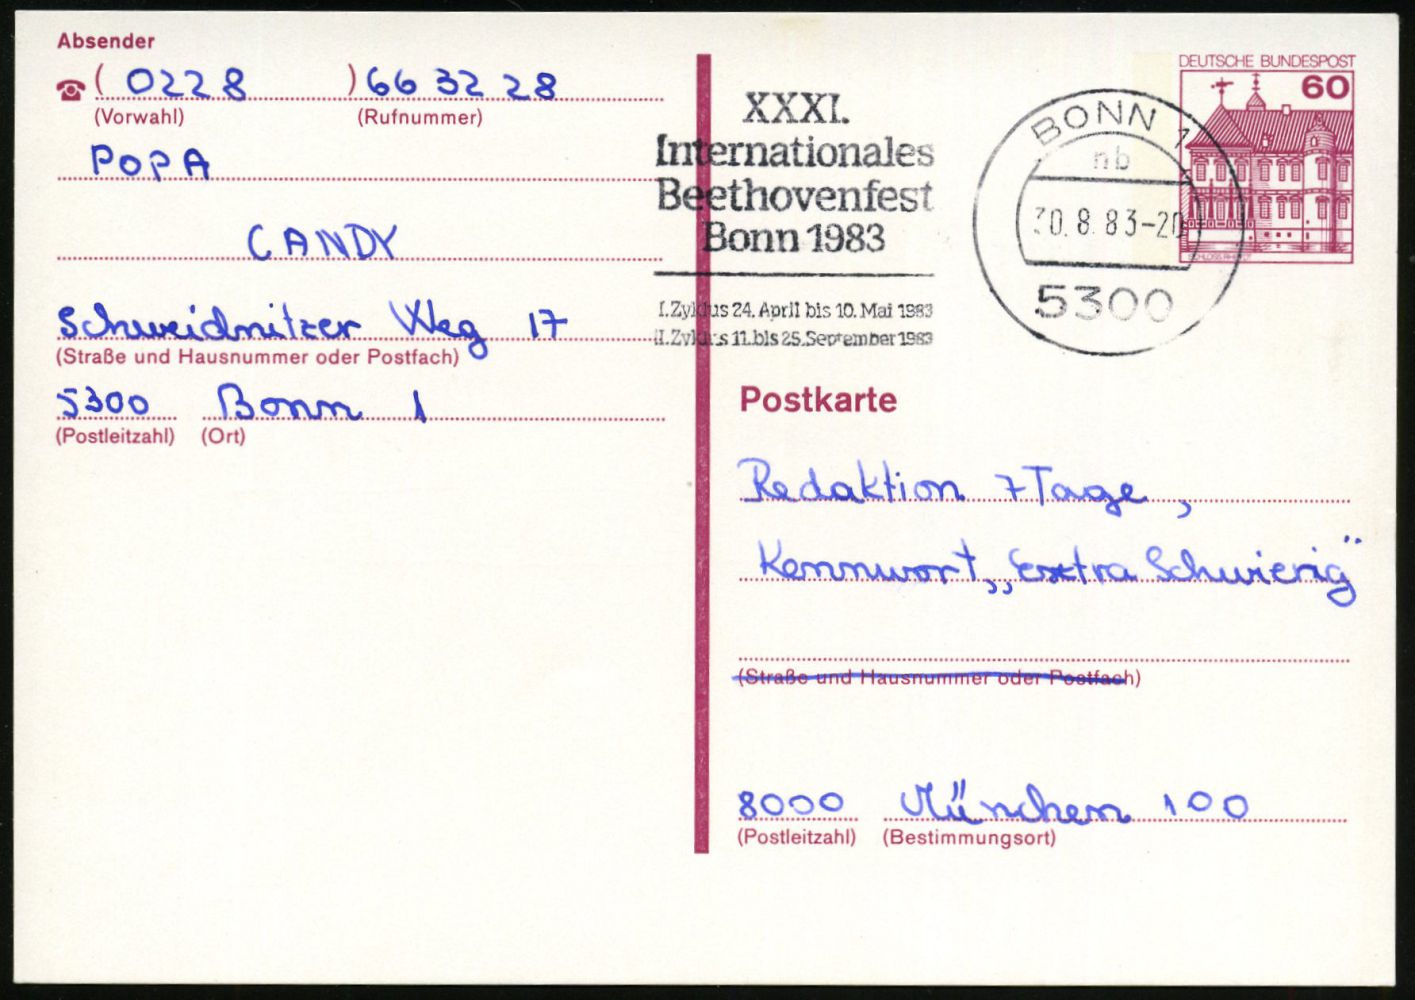 Absender
( 0228 ) 66 32 28
(Vorwahl) (Rufnummer)
POPA
CANDY
Schweidnitzer Weg 17
(Straße und Hausnummer oder Postfach)
5300 Bonn 1
(Postleitzahl) (Ort)
XXXI.
Internationales
Beethovenfest
Bonn 1983
I. Zyklus 24. April bis 10. Mai 1983
II. Zyklus 11. bis 25. September 1983
BONN 1
nb
30.8.83-20
5300
DEUTSCHE BUNDESPOST
60
SCHLOSS RHEYDT
Postkarte
Redaktion 7 Tage,
Kennwort „extra Schwierig"
(Straße und Hausnummer oder Postfach)
8000 München 100
(Postleitzahl) (Bestimmungsort)